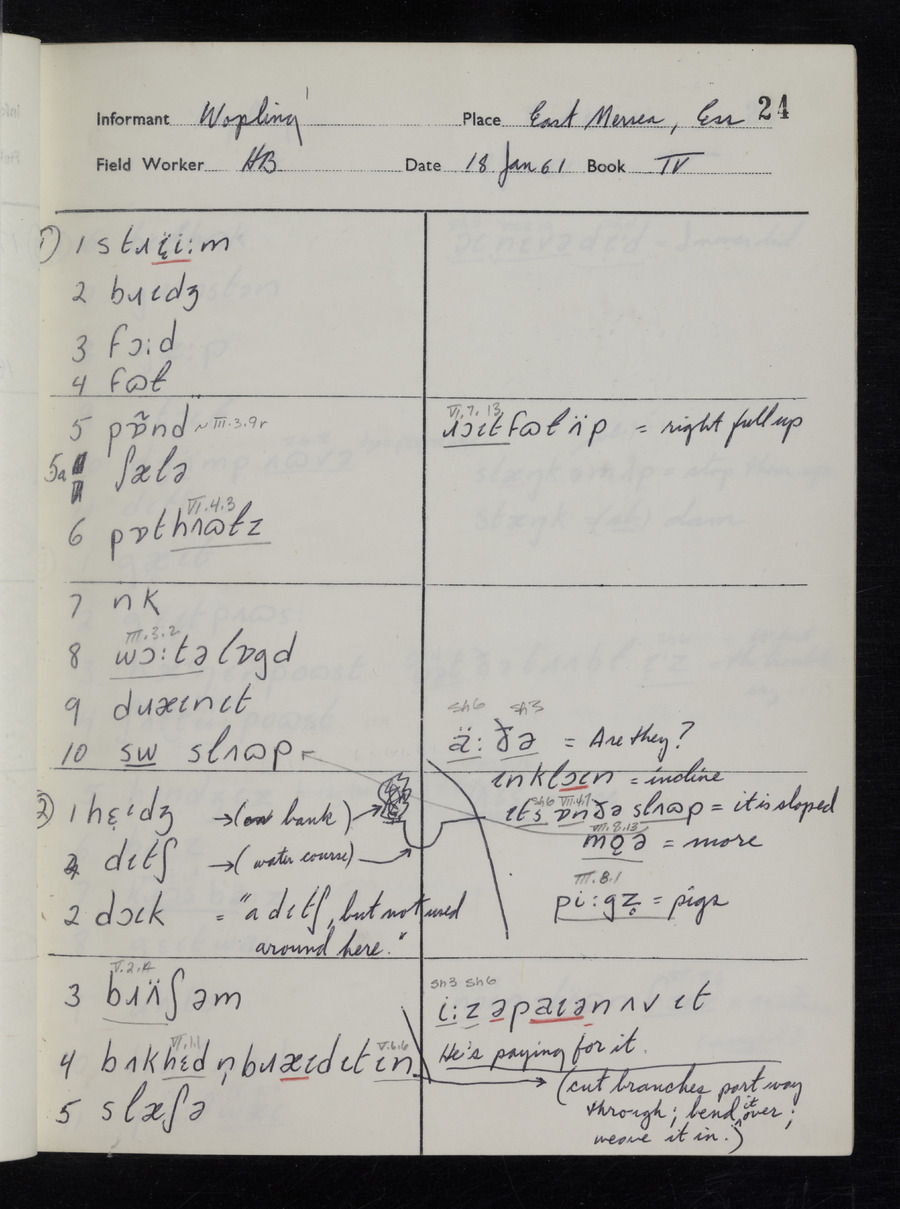 24
Informant Wopling Place East Mersea, Ess
Field Worker HB Date 18 Jan 61 Book IV
1) 1 stɹɪ̈i:m
2 bɹɪdʒ
3 fɔ:d
4 fɷt
5 pɒ̃nd ~ III.3.9r
VI.7.13
ɹɔɪtfɷlʌ̈p = right full up
5a ʃælə
VI.4.3
6 pɒthʌɷlz
7 nk
III.3.2
8 wɔ:təlɒgd
9 dɹæɪnɪt
10 sw slʌɷp
sh6 sh3
ä: ðə = Are they?
ɪnklɔɪn = incline
2) 1 hɛ̣ɪdʒ →(on bank)
sh6 VII.4.7
ɪts ɒnðə slʌɷp = it is sloped
VII.8.13
mo̜ə = more
dɪtʃ →(water course)
III.8.1
pi:gz̥ = pigs
2 dɔɪk = "a dɪtʃ, but not used
around here."
V.2.14
3 bɹʌ̈ʃəm
sh3 sh6
i:zəpaɪənʌvɪt
He's paying for it.
VI.1.1 V.6.6
4 bɹʌkhɛdn̩bɹæɪdɪtɪn
(cut branches part way
through; bend it over;
weave it in.)
5 slæʃə